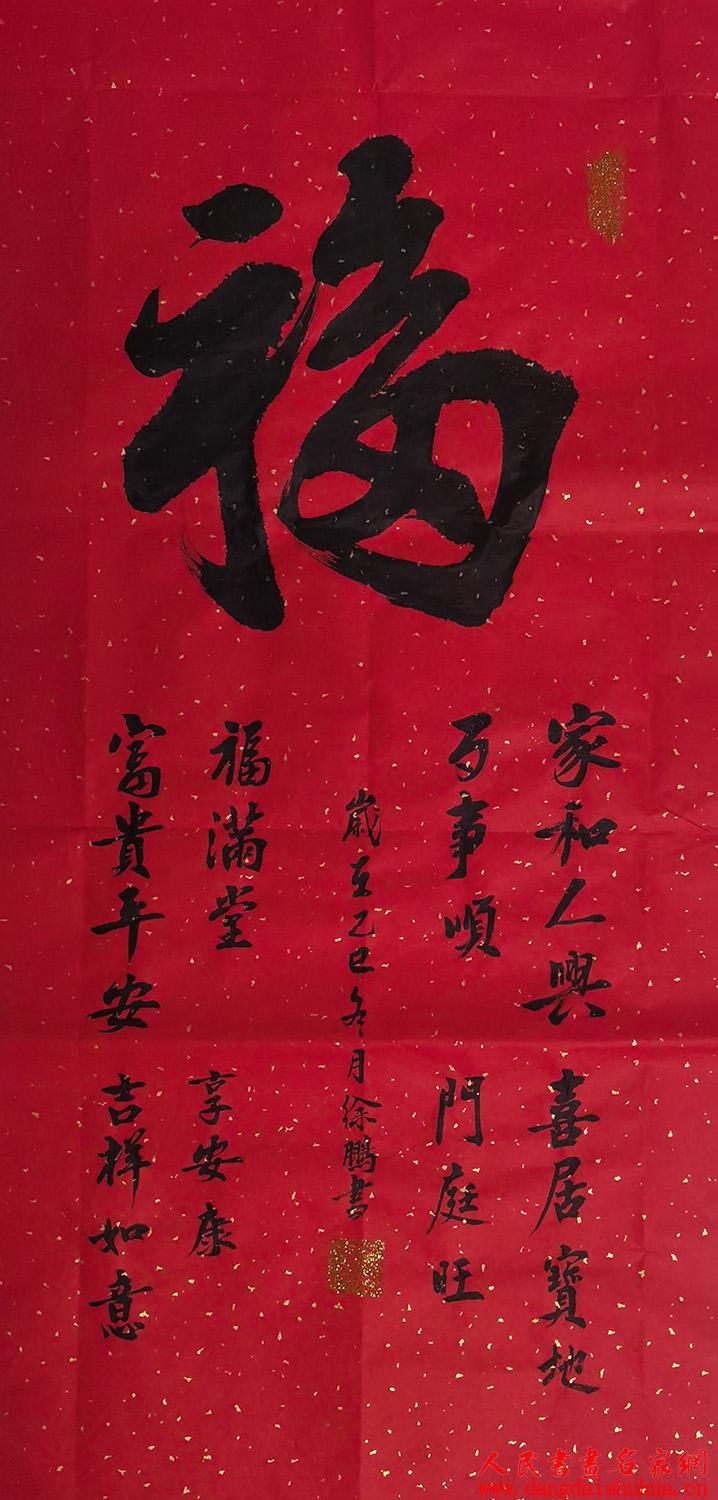 福
家和人興 喜居寶地
万事順 門庭旺
歲在乙巳冬月徐鵬書
福滿堂 享安康
富貴平安 吉祥如意
人民書畫名家網
www.dangdaishuhua.cn